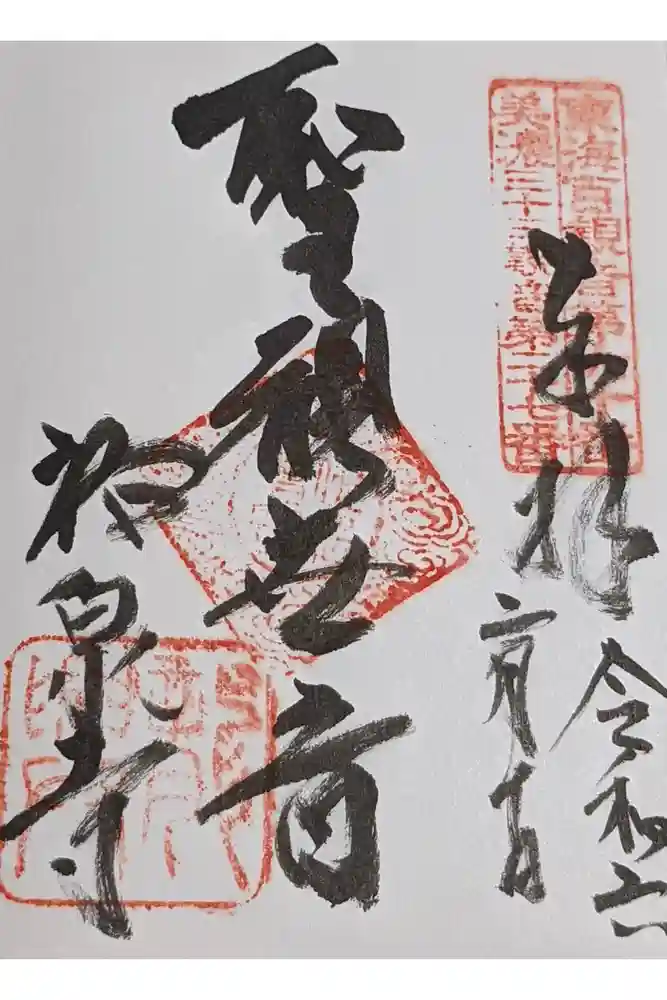 東海百観音第
美濃三十三
第二十七番
奉拝
令和六
二月十日
聖観世音
祐泉寺